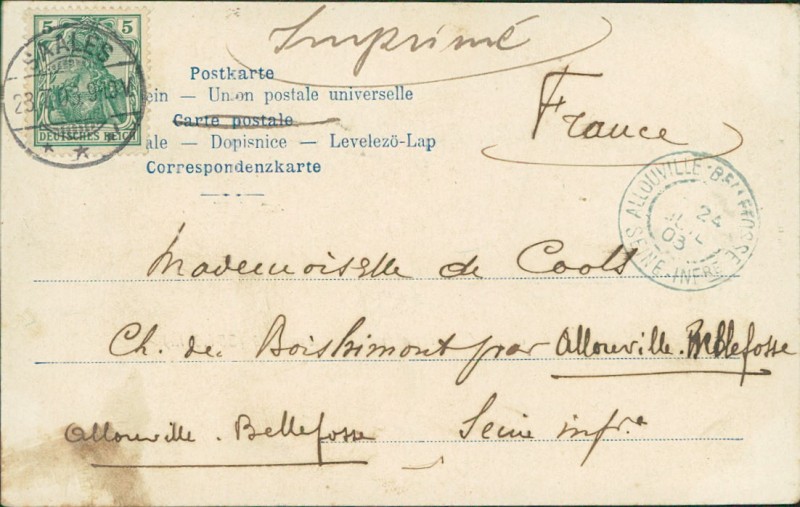 5 5
SAALES
DEUTSCHES REICH
Imprimé
Postkarte
ein — Union postale universelle
Carte postale
ale — Dopisnice — Levelezö-Lap
Correspondenzkarte
France
ALLOUVILLE-BELLEFOSSE
24
03
SEINE-INFRE
Mademoiselle de Cools
Ch. de Boishimont par Allouville. Bellefosse
Allouville. Bellefosse Seine infre